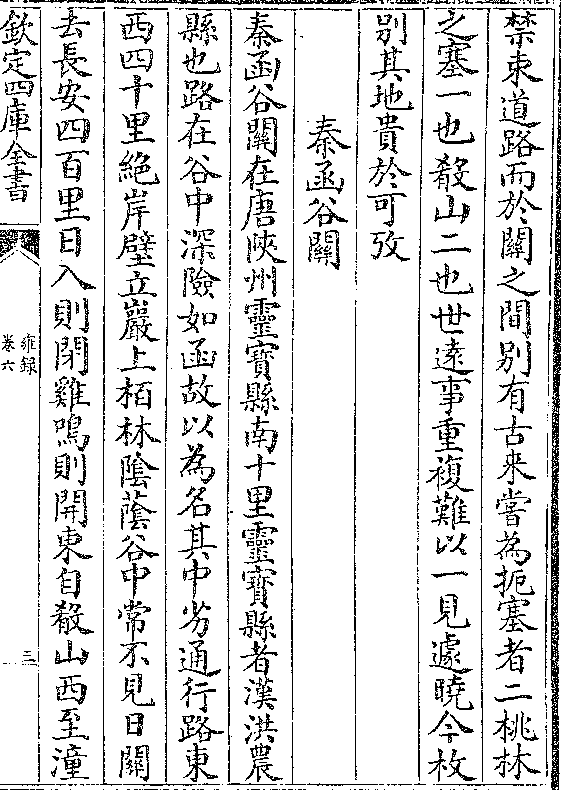 禁束道路而於關之間别有古来嘗為扼塞者二桃林
之塞一也殽山二也世逺事重複難以一見遽曉今枚
别其地貴於可攷
秦函谷關
秦函谷關在唐陜州靈寳縣南十里靈寳縣者漢洪農
縣也路在谷中深險如函故以為名其中劣通行路東
西四十里絶岸壁立巖上栢林陰蔭谷中常不見日關
去長安四百里日入則閉雞鳴則開東自殽山西至潼
欽定四庫全書
雍録
卷六
三